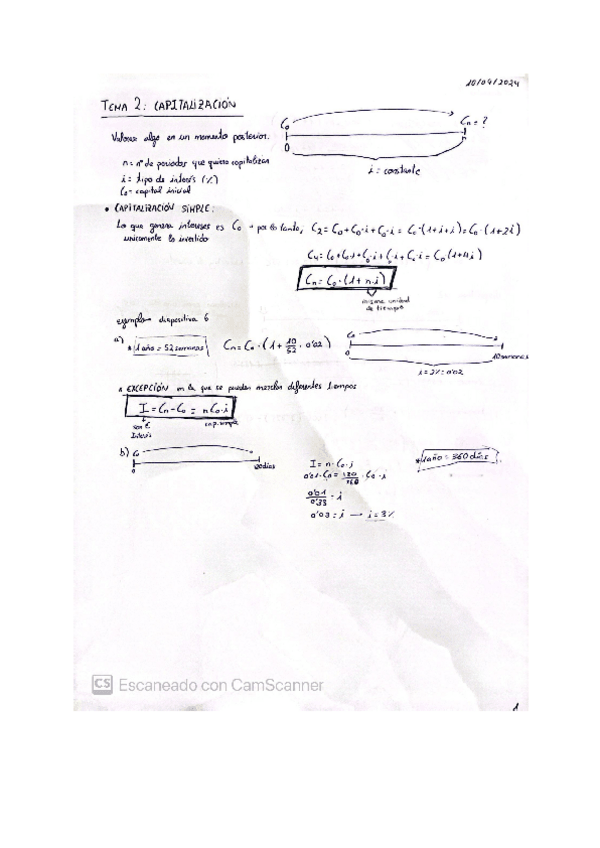 10/04/2024
TEMA 2: CAPITALIZACIÓN
C₀ Cn = ?
Valorar algo en un momento posterior.
0 n
i = constante
n = nº de periodos que quiero capitalizar
i = tipo de interés (%)
C₀ = capital inicial
• CAPITALIZACIÓN SIMPLE:
Lo que genera intereses es C₀ → por lo tanto, C₂ = C₀ + C₀·i + C₀·i = C₀·(1+i+i) = C₀·(1+2i)
unicamente lo invertido
C₄ = C₀+C₀·i+C₀·i+C₀·i+C₀·i = C₀(1+4i)
Cn = C₀·(1+n·i)
misma unidad
de tiempo
ejemplo diapositiva 6
a) * 1 año = 52 semanas Cn = C₀·(1 + 10/52 · 0'02) C₀
0 10 semanas
i = 2% = 0'02
* EXCEPCIÓN en la que se pueden mezclar diferentes tiempos
I = Cn - C₀ = nC₀·i
son €
Interés
cap. simple
b) C₀
0 120 días
* 1 año = 360 días
I = n·C₀·i
0'01·C₀ = 120/360 · C₀·i
0'01/0'33 = i
0'03 = i → i = 3%
CS Escaneado con CamScanner
1